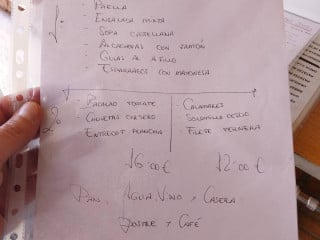 1.
- PAELLA
- ENSALADA MIXTA
- SOPA CASTELLANA
- ALCACHOFAS CON JAMÓN
- GULAS AL AJILLO
- ESPARRAGOS CON MAHONESA
2º
- PESCADO TOMATE
- CHULETAS CORDERO
- ENTRECOT PLANCHA
- CALAMARES
- SOLOMILLO CERDO
- FILETE TERNERA
16'00€
12'00€
PAN, AGUA, VINO Y CASERA
POSTRE Y CAFÉ